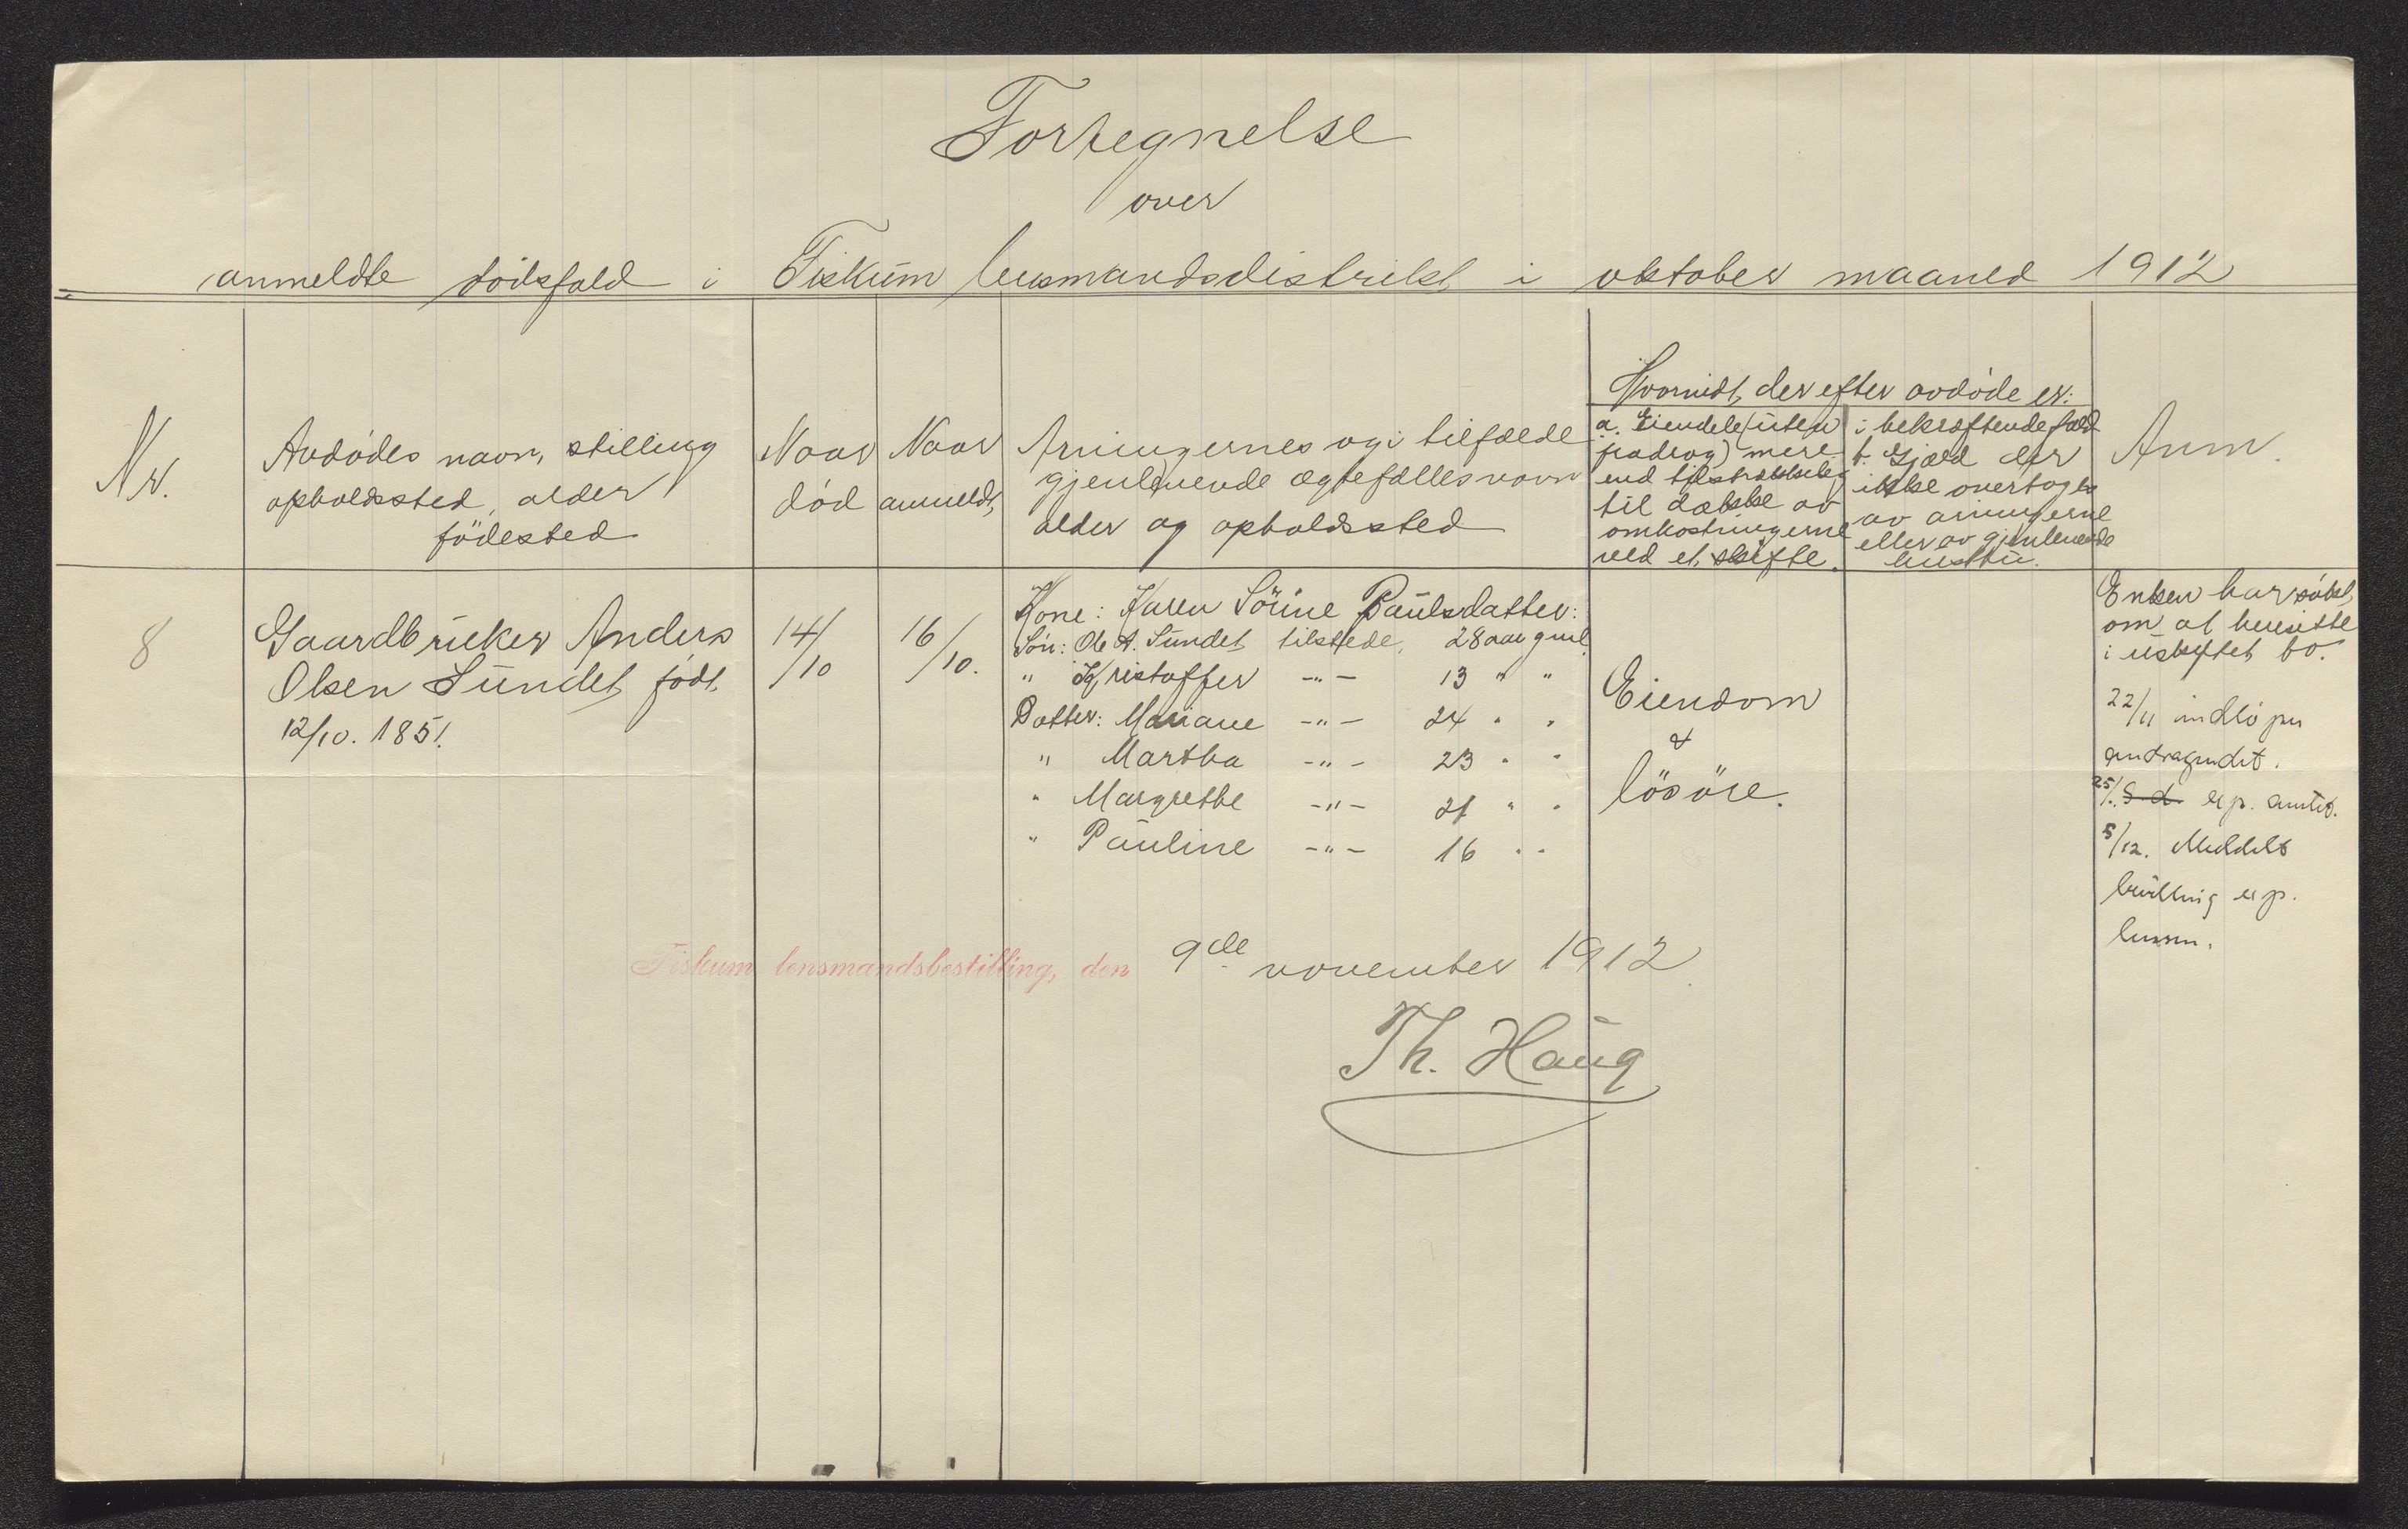 Fortegnelse
over
anmeldte dödsfald i Fiskum lensmandsdistrikt i oktober maaned 1912
Nr.
Avdödes navn, stilling
opholdssted, alder
födested
Naar
död
Naar
anmeldt,
Arvingernes og i tilfælde
gjenlevende ægtefælles navn
alder og opholdssted
Hvorvidt der efter avdöde er:
a. Eiendele (uten
fradrag) mere
end tilstrækkelig
til dække av
omkostningerne
ved et skifte.
i bekræftende fald
b. Gjæld der
ikke overtages
av arvingerne
eller av gjenlevende
hustru.
Anm.
8
Gaardbruker Anders
Olsen Sundet födt
12/10. 1851.
14/10
16/10.
Kone: Karen Sörine Paulsdatter:
Sön: Ole A. Sundet tilstede, 28 aar gml.
" Kristoffer -"- 13 " "
Datter: Mariane -"- 24 " "
" Martha -"- 23 " "
" Margrethe -"- 21 " "
" Pauline -"- 16 " "
Eiendom
&
lösöre.
Enken har sökt
om at hensitte
i uskiftet bo.
22/11 indlöper
andragendet.
25/. S. d. exp. amtet.
5/12. Meddelt
bevilling exp.
lensm.
Fiskum lensmandsbestilling, den 9de november 1912.
Th. Haug